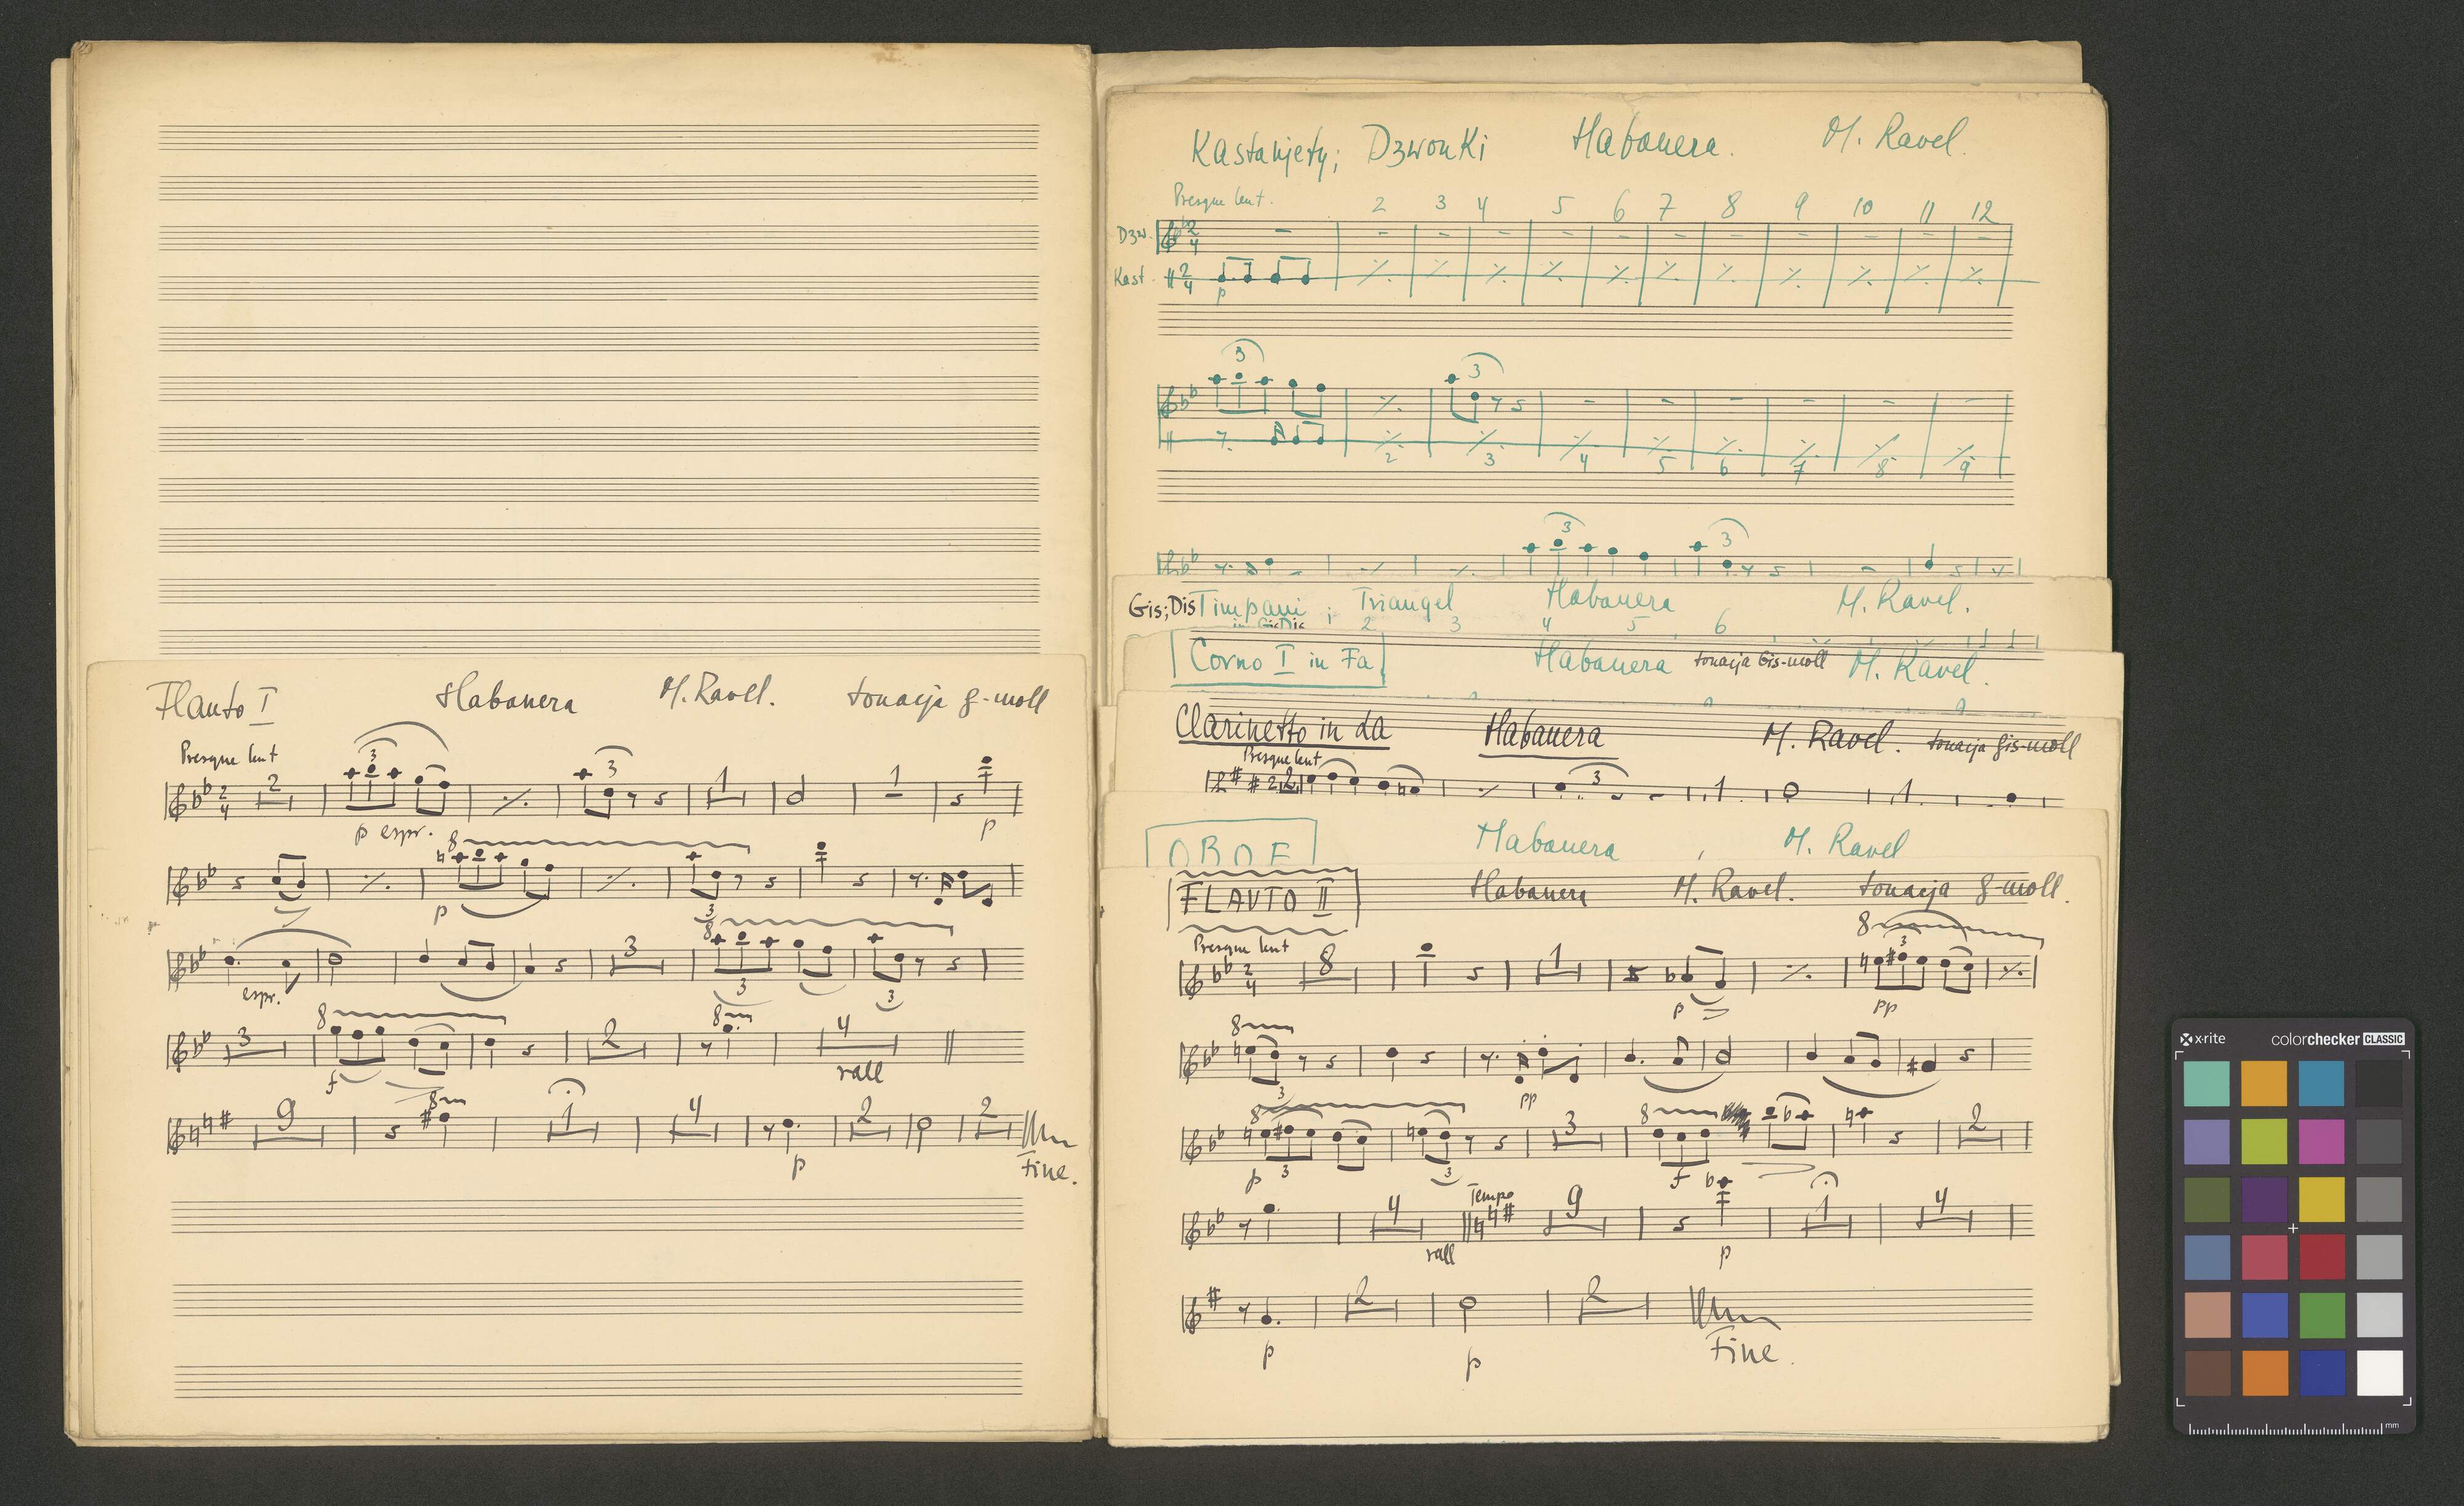 Flauto I Habanera M. Ravel. tonacja g-moll
Presque lent
2 3 3 1 1
p espr. p
8
p 3
8
espr. 3 3 3
3 8 2 8 4
f rall
9 8 1 4 2 2
p Fine.
Kastanjety; Dzwonki Habanera. M. Ravel.
Presque lent. 2 3 4 5 6 7 8 9 10 11 12
Dzw. 2 4
Kast. 2 4
p
3 3
2 3 4 5 6 7 8 9
3 3
Gis; Dis Timpani ; Triangel Habanera M. Ravel.
in Gis Dis 2 3 4 5 6
Corno I in Fa Habanera tonacja Gis-moll M. Ravel.
Clarinetto in La Habanera M. Ravel. tonacja gis-moll
Presque lent
2 2 3 1 1
OBOE Habanera M. Ravel
FLAUTO II Habanera M. Ravel. tonacja g-moll.
Presque lent 8
2 4 8 1 3
p pp
8
3 pp
8 3 8 2
p 3 3 f
4 Tempo 9 1 4
rall p
2 2
p p Fine.
x-rite colorchecker CLASSIC
mm